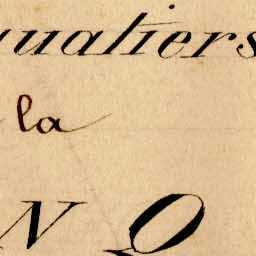 uatiers
la
N O